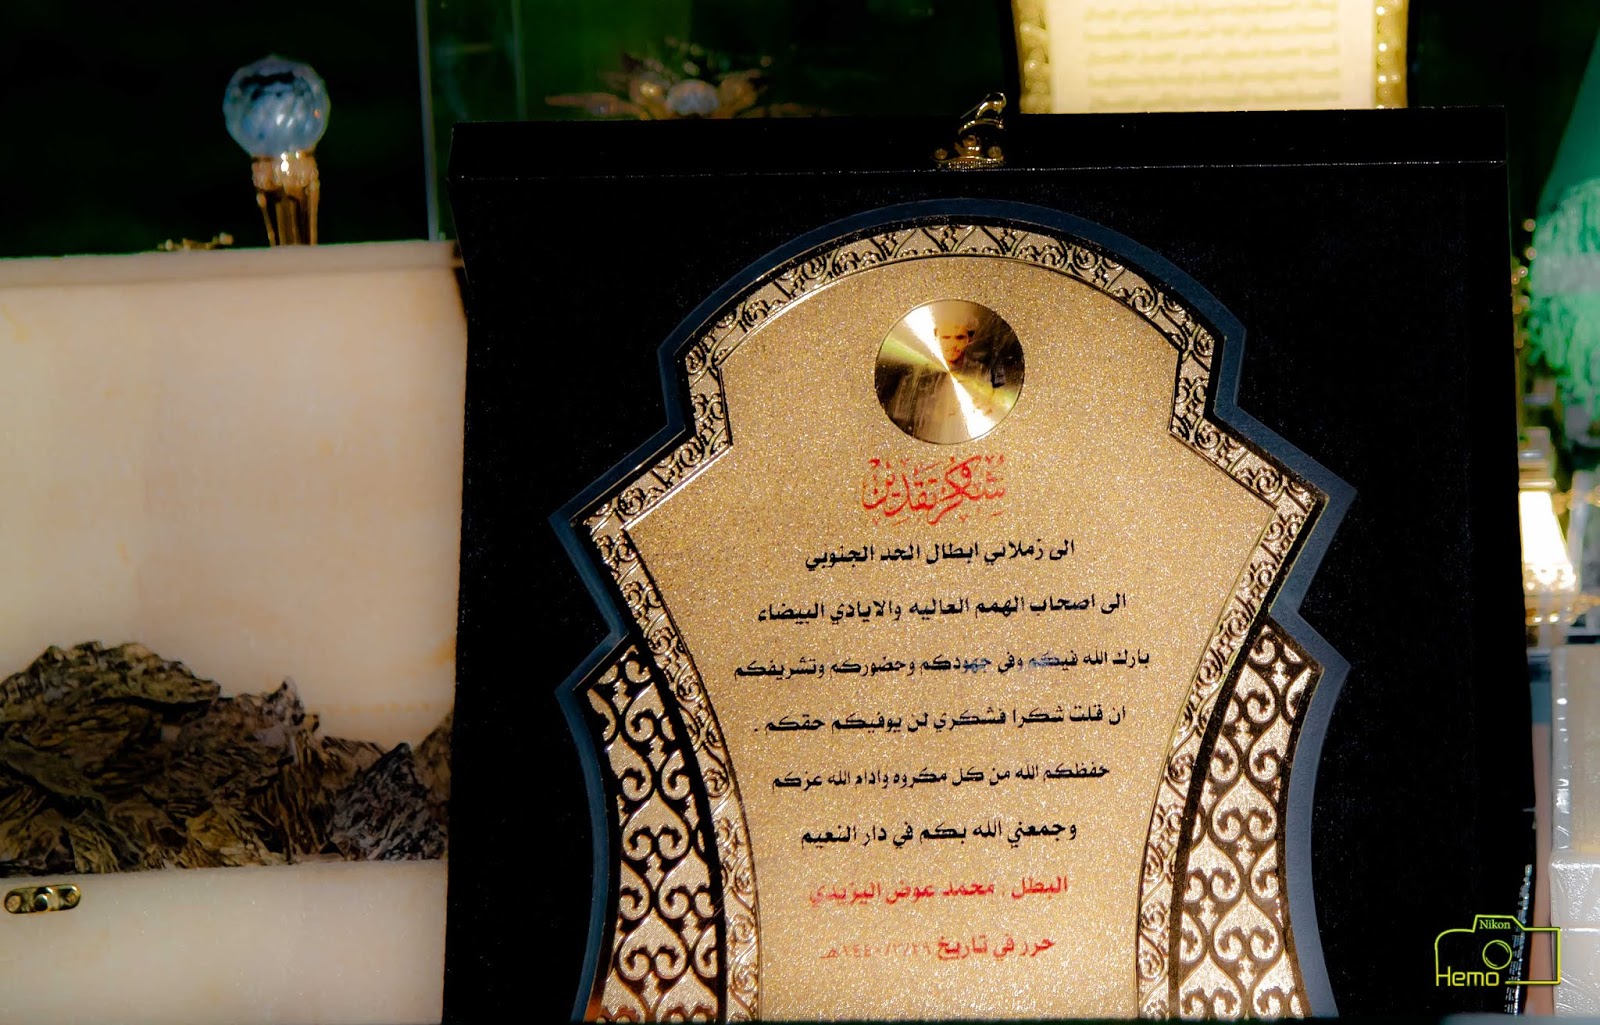 شكر وتقدير
الى زملائي ابطال الحد الجنوبي
الى اصحاب الهمم العاليه والايادي البيضاء
بارك الله فيكم وفي جهودكم وحضوركم وتشريفكم
ان قلت شكرا فشكري لن يوفيكم حقكم .
حفظكم الله من كل مكروه وادام الله عزكم
وجمعني الله بكم في دار النعيم
البطل . محمد عوض اليزيدي
حرر في تاريخ ١٤٤٠/٣/٢٦هـ
Nikon
Hemo